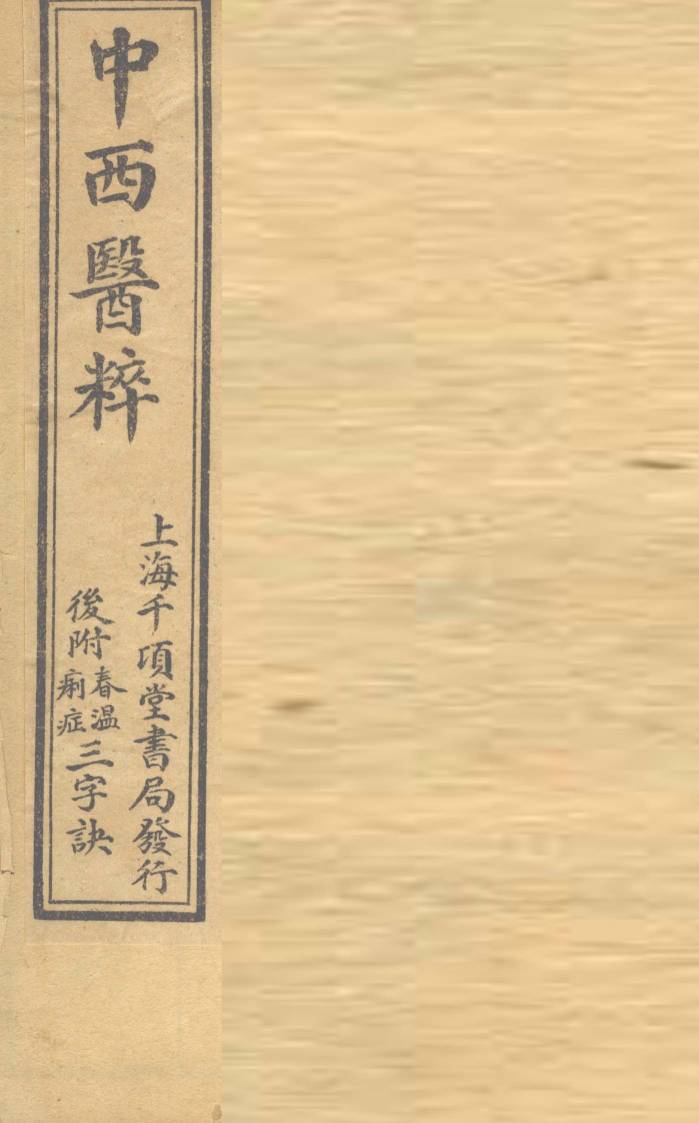 中西醫粹
上海千項堂書局發行
後附春温痢症三字訣